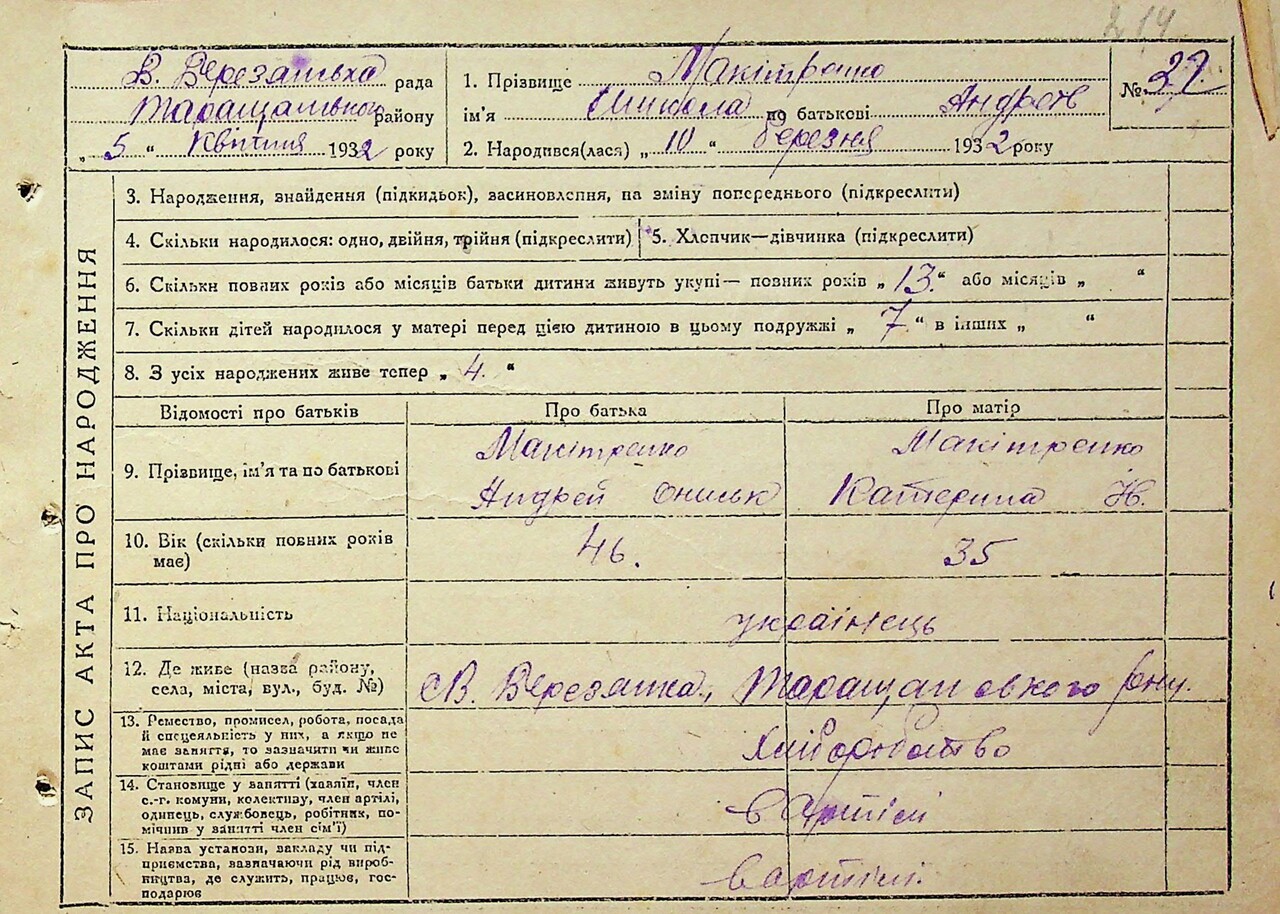 214
В. Березанська рада
Таращанського району
„ 5 “ Квітня 1932 року
1. Прізвище Макітренко
ім'я Микола по батькові Андрєєв
2. Народився(лася) „ 10 “ березня 1932 року
№ 29
ЗАПИС АКТА ПРО НАРОДЖЕННЯ
3. Народження, знайдення (підкидьок), засиновлення, на зміну попереднього (підкреслити)
4. Скільки народилося: одно, двійня, трійня (підкреслити)
5. Хлопчик—дівчинка (підкреслити)
6. Скільки повних років або місяців батьки дитини живуть укупі— повних років „ 13. “ або місяців „ “
7. Скільки дітей народилося у матері перед цією дитиною в цьому подружжі „ 7. “ в інших „ “
8. З усіх народжених живе тепер „ 4. “
Відомості про батьків Про батька Про матір
9. Прізвище, ім'я та по батькові
Макітренко
Андрей Ониськ
Макітренко
Катерина Н.
10. Вік (скільки повних років
має)
46.
35
11. Національність
українець
12. Де живе (назва району,
села, міста, вул., буд. №)
с. В. Березянка, Таращанського рну.
13. Ремество, промисел, робота, посада
й спецеяльність у них, а якщо не
має заняття, то зазначити чи живе
коштами рідні або держави
Хліборобство
14. Становище у занятті (хазяїн, член
с.-г. комуни, колективу, член артілі,
одинець, службовець, робітник, по-
мічник у занятті член сім'ї)
в Артілі
15. Назва установи, закладу чи під-
приємства, зазначаючи рід вироб-
ництва, де служить, працює, гос-
подарює
в артілі.